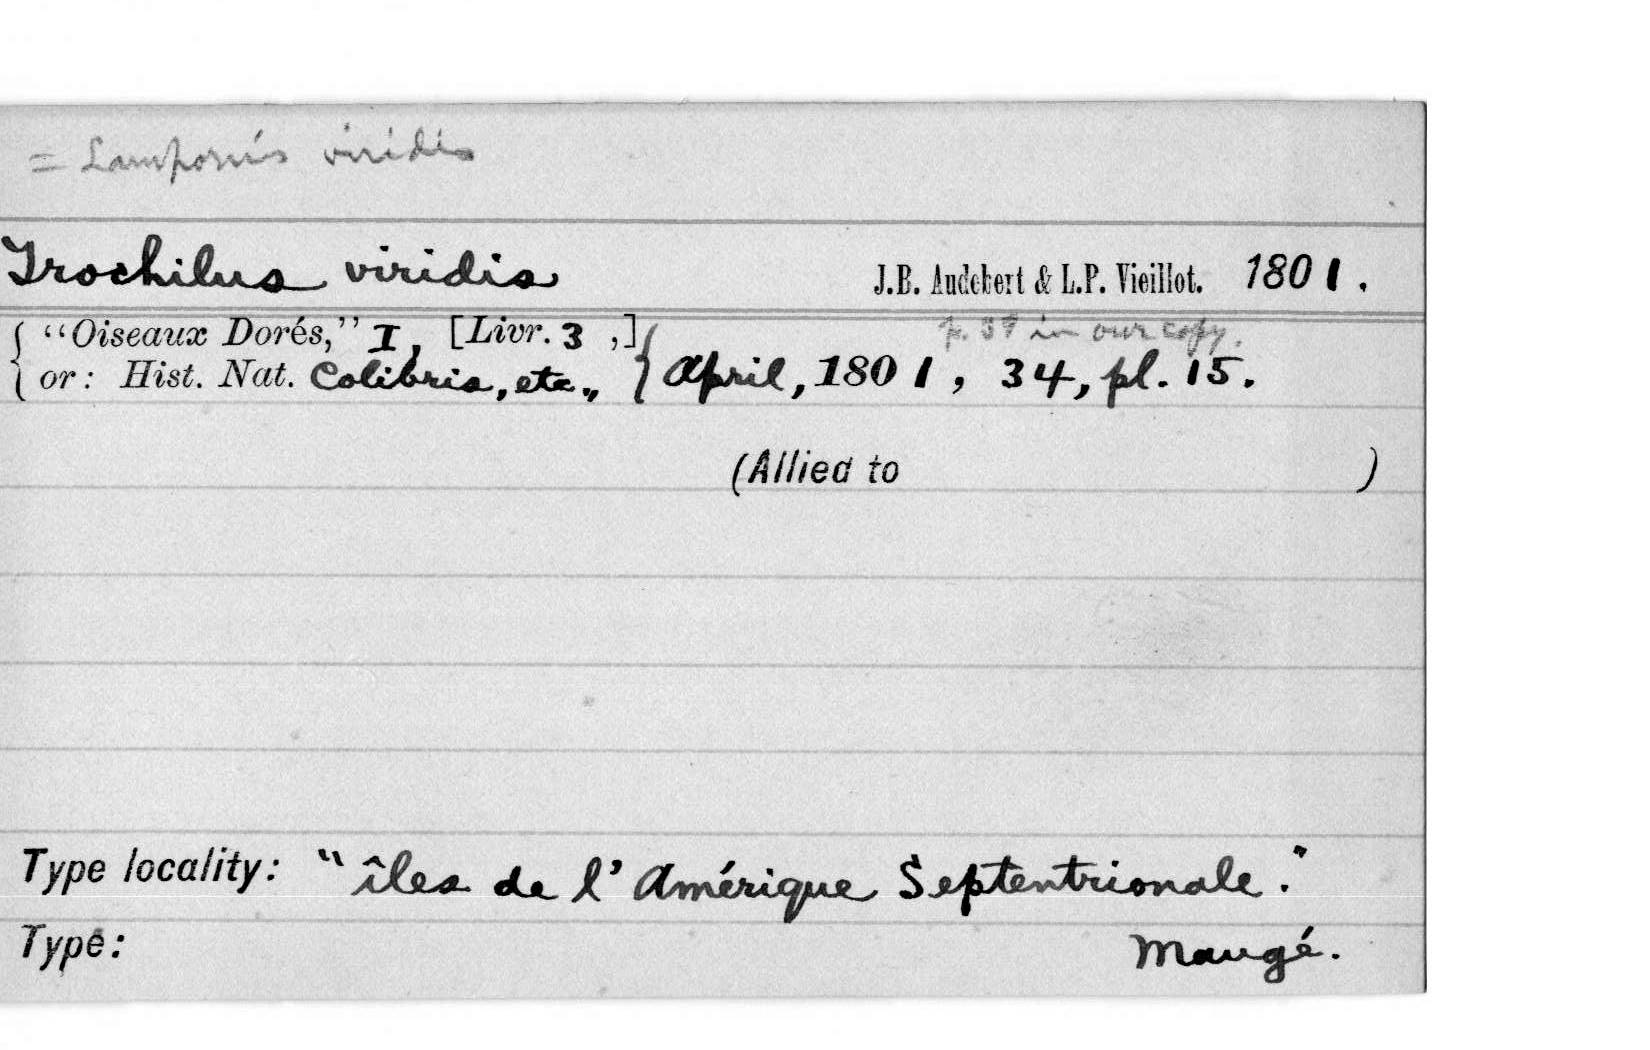 = Lampornis viridis
Trochilus viridis J.B. Audebert & L.P. Vieillot. 1801.
p. 39 in our copy.
{ "Oiseaux Dorés," I, [Livr. 3 ,]
{ or: Hist. Nat. Colibris, etc., } April, 1801, 34, pl. 15.
(Allied to )
Type locality: "îles de l'Amérique Septentrionale."
Type: Maugé.